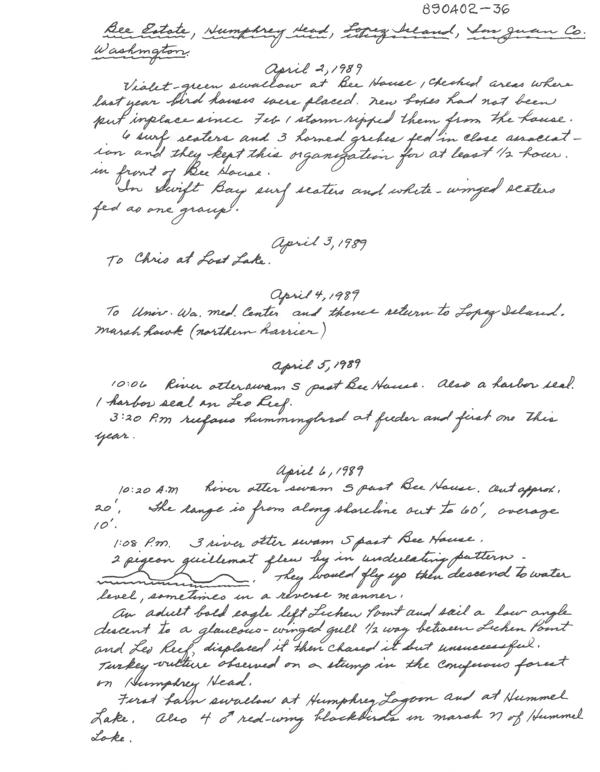 890402-36
Bee Estate, Humphrey Head, Lopez Island, San Juan Co.
Washington.
April 2, 1989
Violet-green swallow at Bee House, checked areas where
last year bird houses were placed. New boxes had not been
put inplace since Feb 1 storm ripped them from the house.
6 surf scaters and 3 horned grebes fed in close associat-
ion and they kept this organization for at least 1/2 hour.
in front of Bee House.
In Swift Bay surf scaters and white-winged scaters
fed as one group.
April 3, 1989
To Chris at Lost Lake.
April 4, 1989
To Univ. Wa. Med. Center and thence return to Lopez Island.
Marsh hawk (northern harrier)
April 5, 1989
10:06 River otter swam S past Bee House. Also a harbor seal.
1 harbor seal on Leo Reef.
3:20 P.m rufous hummingbird at feeder and first one this
year.
April 6, 1989
10:20 A.M River otter swam S past Bee House. Out approx.
20'. The range is from along shoreline out to 60', average
10'.
1:08 P.M. 3 river otter swam S past Bee House.
2 pigeon guillemot flew by in undulating pattern -
. They would fly up then descend to water
level, sometimes in a reverse manner.
An adult bald eagle left Lichen Point and sail a low angle
descent to a glaucous-winged gull 1/2 way between Lichen Point
and Leo Reef, displaced it then chased it but unsuccessful.
Turkey-vulture observed on a stump in the coniferous forest
on Humphrey Head.
First barn swallow at Humphrey Lagoon and at Hummel
Lake. Also 4 ♂ red-wing blackbirds in marsh N of Hummel
Lake.